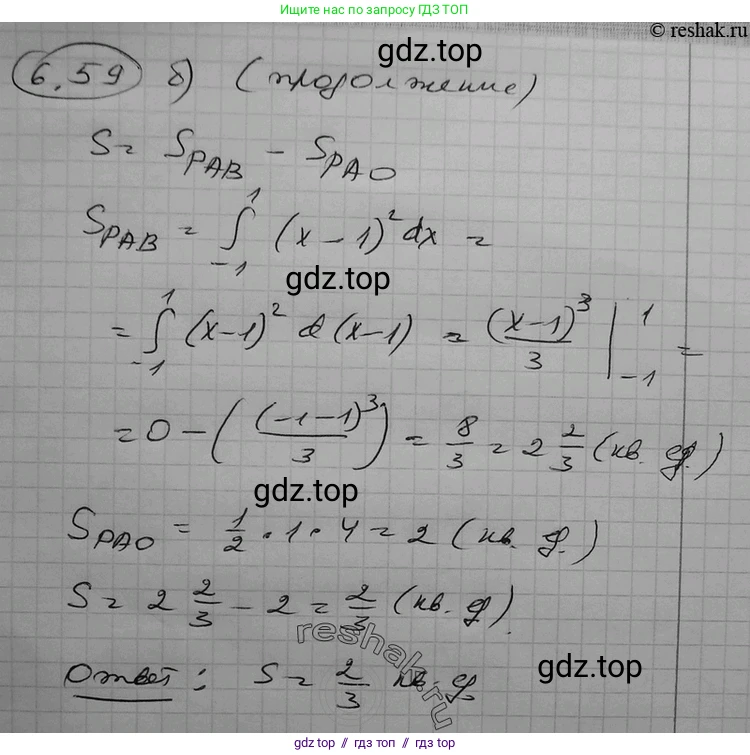 Ищите нас по запросу ГДЗ ТОП
© reshak.ru
gdz.top
6.59 б) (продолжение)
S = S_PAB - S_PAO
S_PAB = ∫_{-1}^{1} (x-1)² dx =
gdz.top
= ∫_{-1}^{1} (x-1)² d(x-1) = (x-1)³/3 |_{-1}^{1} =
= 0 - ((-1-1)³/3) = 8/3 = 2 2/3 (кв. ед.)
gdz.top
S_PAO = 1/2 · 1 · 4 = 2 (кв. ед.)
S = 2 2/3 - 2 = 2/3 (кв. ед)
reshak.ru
Ответ: S = 2/3 кв. ед
gdz.top
gdz top // гдз топ // gdz.top